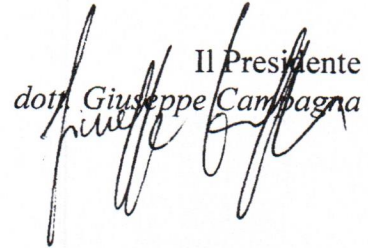 Il Presidente
dott. Giuseppe Campagna